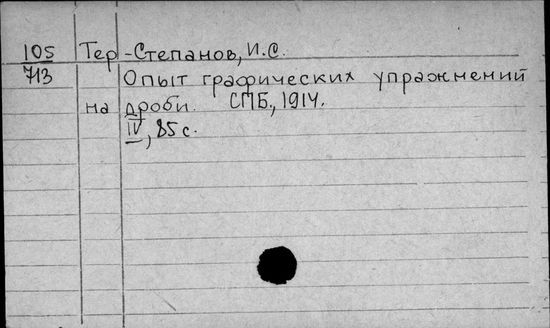 105 Тер-Степанов, И.С.
713 Опыт графических упражнений
на дроби. СПБ., 1914.
IV, 85 с.